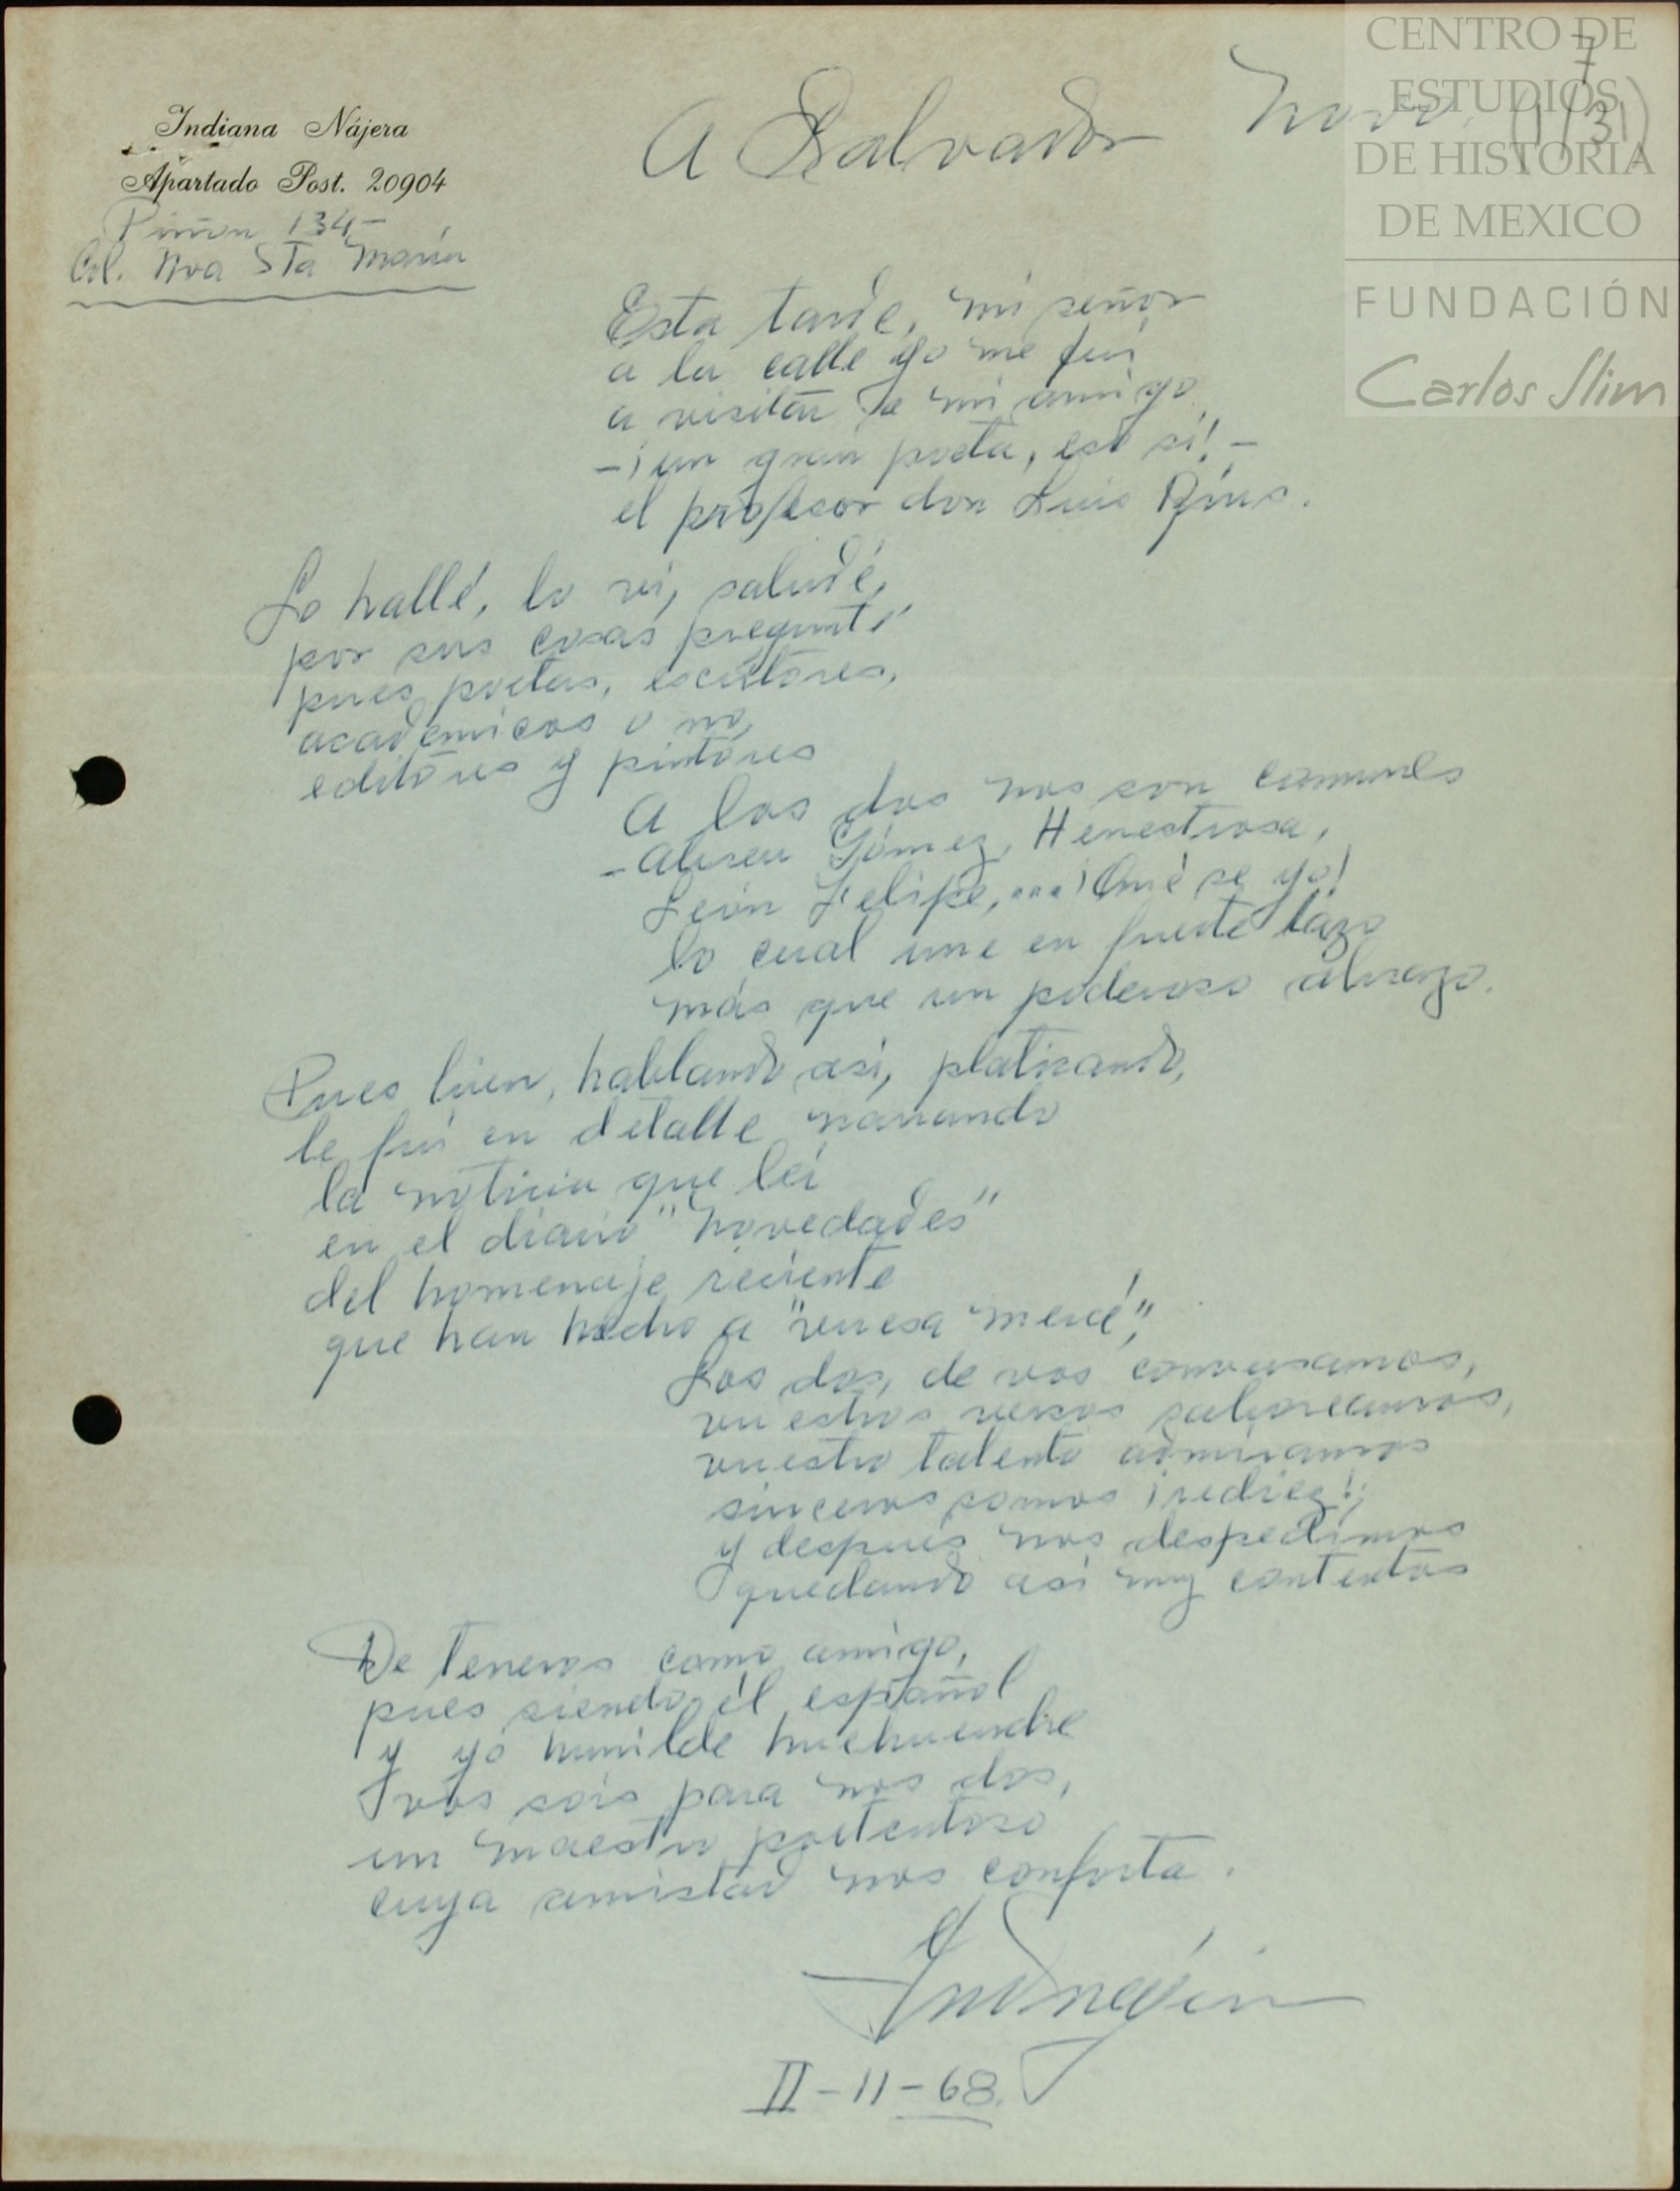 CENTRO DE
ESTUDIOS
DE HISTORIA
DE MEXICO
FUNDACIÓN
Carlos Slim
Indiana Nájera
Apartado Post. 20904
Piñon 134-
Col. Nva Sta María
A Salvador Novo
7
Esta tarde, mi señor
a la calle yo me fuí
a visitar a mi amigo
-¡un gran poeta, eso sí!-
el profesor don Luis Rius.
Lo hallé, lo ví, saludé,
por sus cosas pregunté
pues poetas, escritores,
academicos o no,
editores y pintores
A los dos nos son comunes
-Abreu Gómez, Henestrosa,
León Felipe,...¡Qué se yo!
lo cual une en fuerte lazo
más que un poderoso abrazo.
Pues bien, hablando así, platicando,
le fuí en detalle narrando
la noticia que leí
en el diario "Novedades"
del homenaje reciente
que han hecho a "vuesa mercé",
Los dos, de vos conversamos,
vuestros versos saboreamos,
vuestro talento admiramos
sinceros somos ¡rediez!;
y después nos despedimos
quedando así muy contentos
De teneros como amigo,
pues siendo él español
y yo humilde huehuenche
vos sois para nos dos,
un maestro portentoso
cuya amistad nos conforta.
II-11-68.